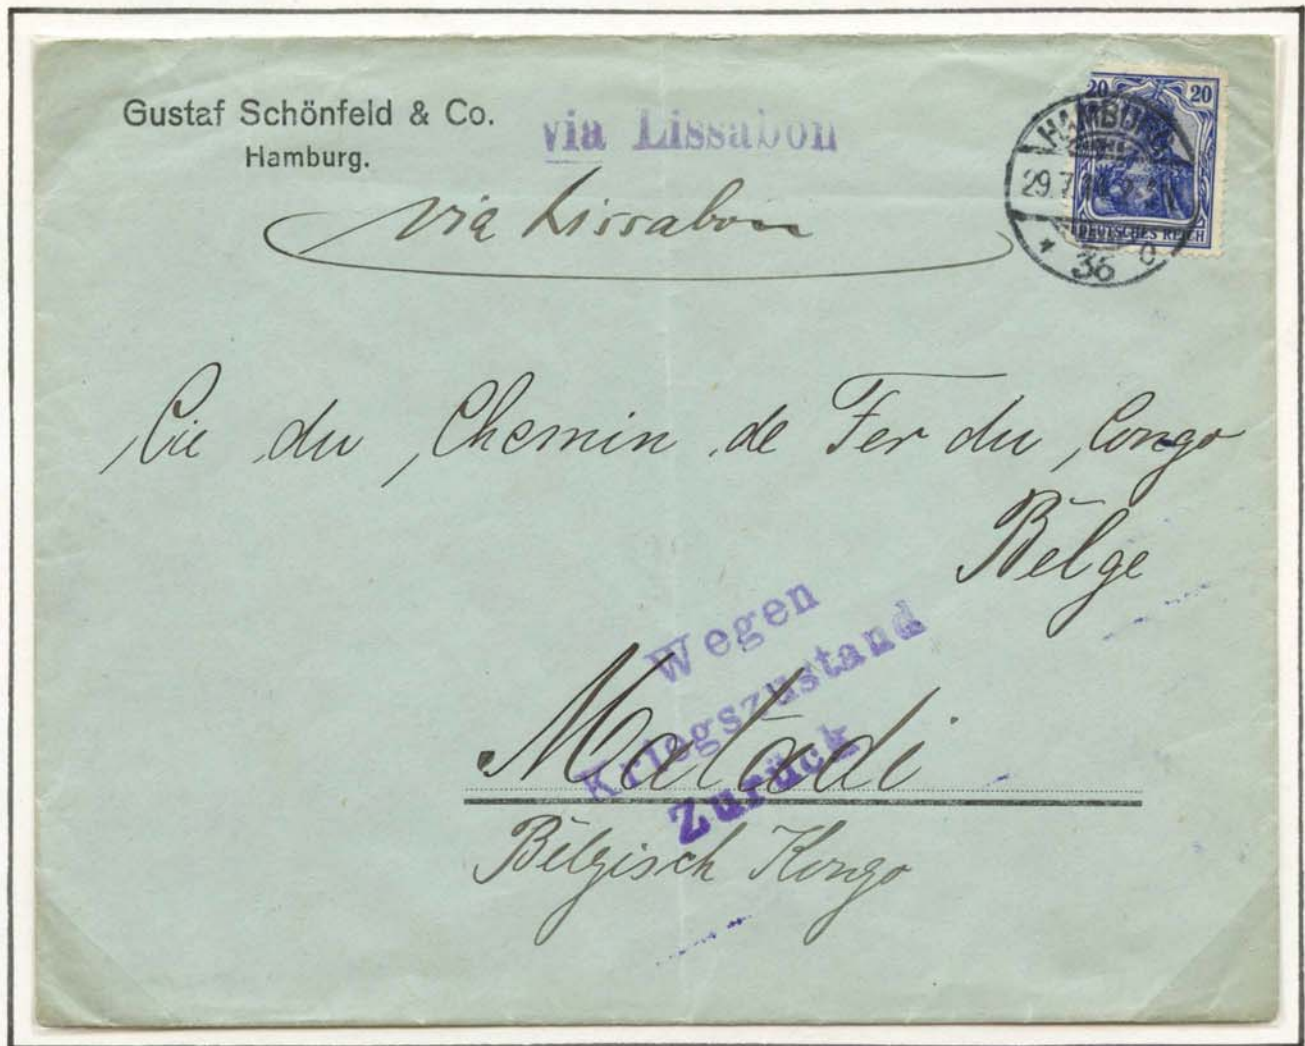 Gustaf Schönfeld & Co.
Hamburg.
via Lissabon
via Lissabon
20 20
HAMBURG
29.7.14
DEUTSCHES REICH
* 36 o
Cie du Chemin de Fer du Congo
Belge
Wegen
Kriegszustand
Zurück
Matadi
Belgisch Kongo